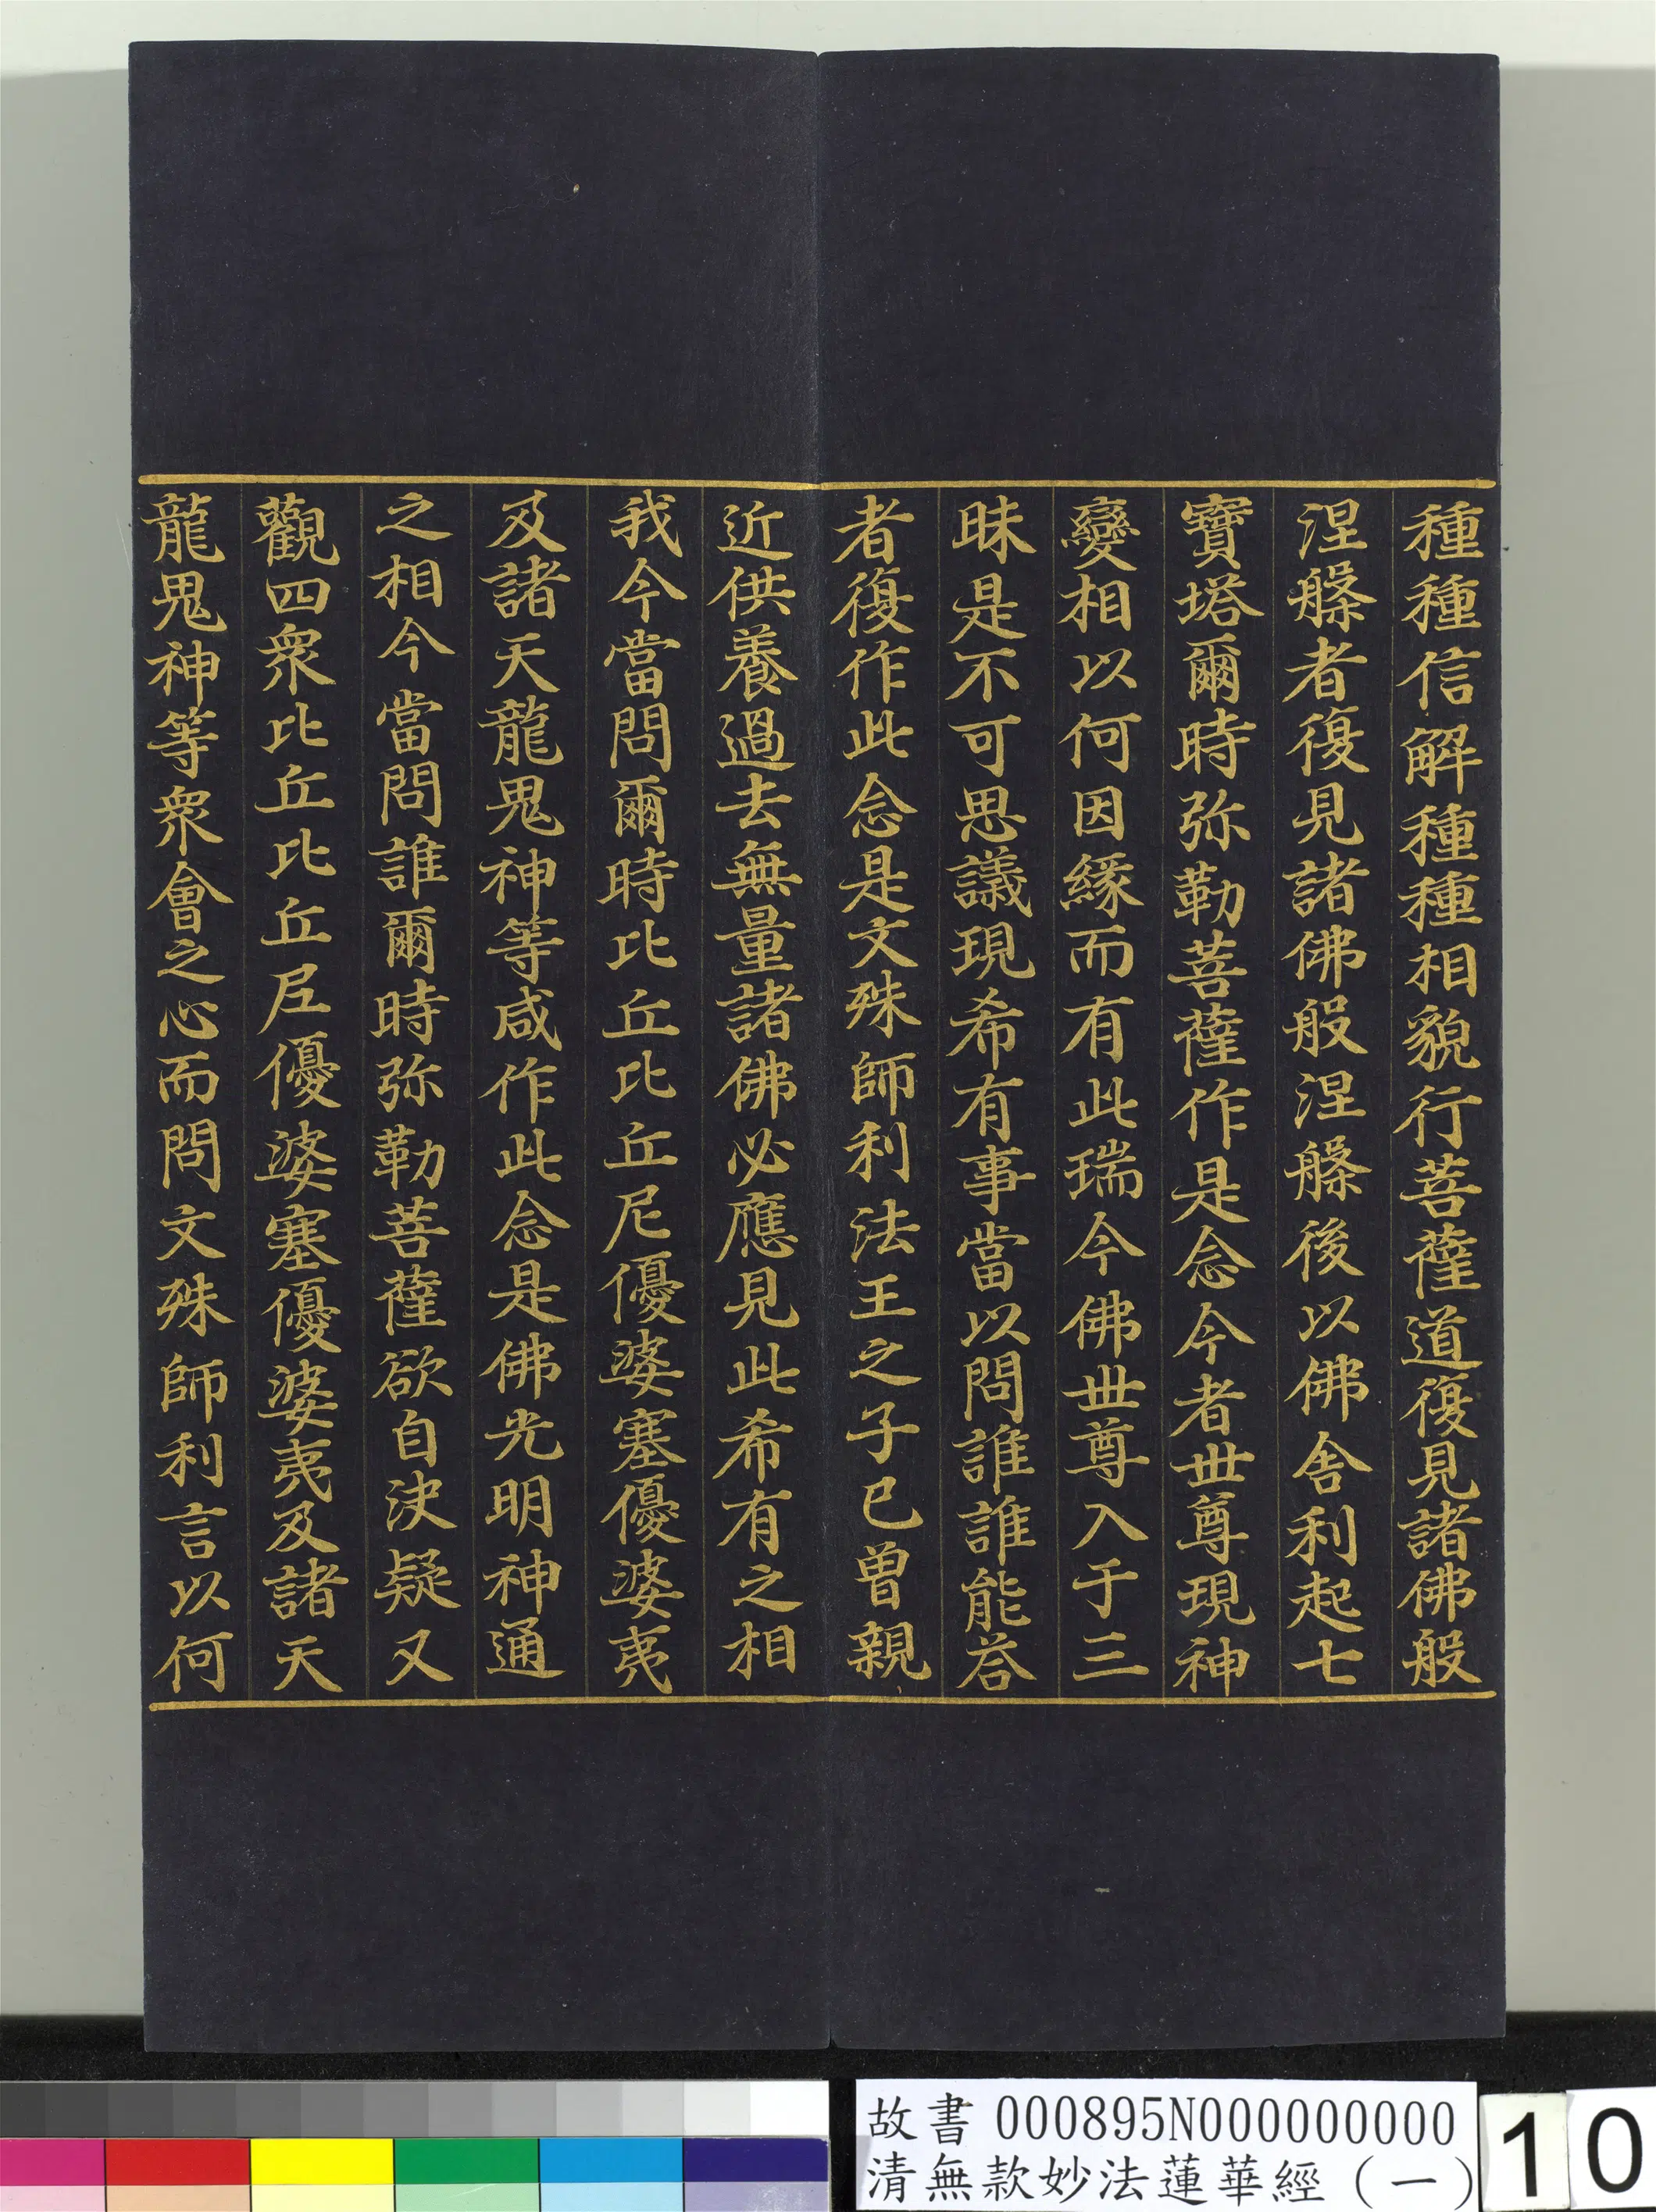 種種信解種種相貌行菩薩道復見諸佛般
涅槃者復見諸佛般涅槃後以佛舍利起七
寶塔爾時弥勒菩薩作是念今者世尊現神
變相以何因緣而有此瑞今佛世尊入于三
昧是不可思議現希有事當以問誰誰能荅
者復作此念是文殊師利法王之子已曾親
近供養過去無量諸佛必應見此希有之相
我今當問爾時比丘比丘尼優婆塞優婆夷
及諸天龍鬼神等咸作此念是佛光明神通
之相今當問誰爾時弥勒菩薩欲自決疑又
觀四眾比丘比丘尼優婆塞優婆夷及諸天
龍鬼神等眾會之心而問文殊師利言以何
故書 000895N000000000
清無款妙法蓮華經（一）
10